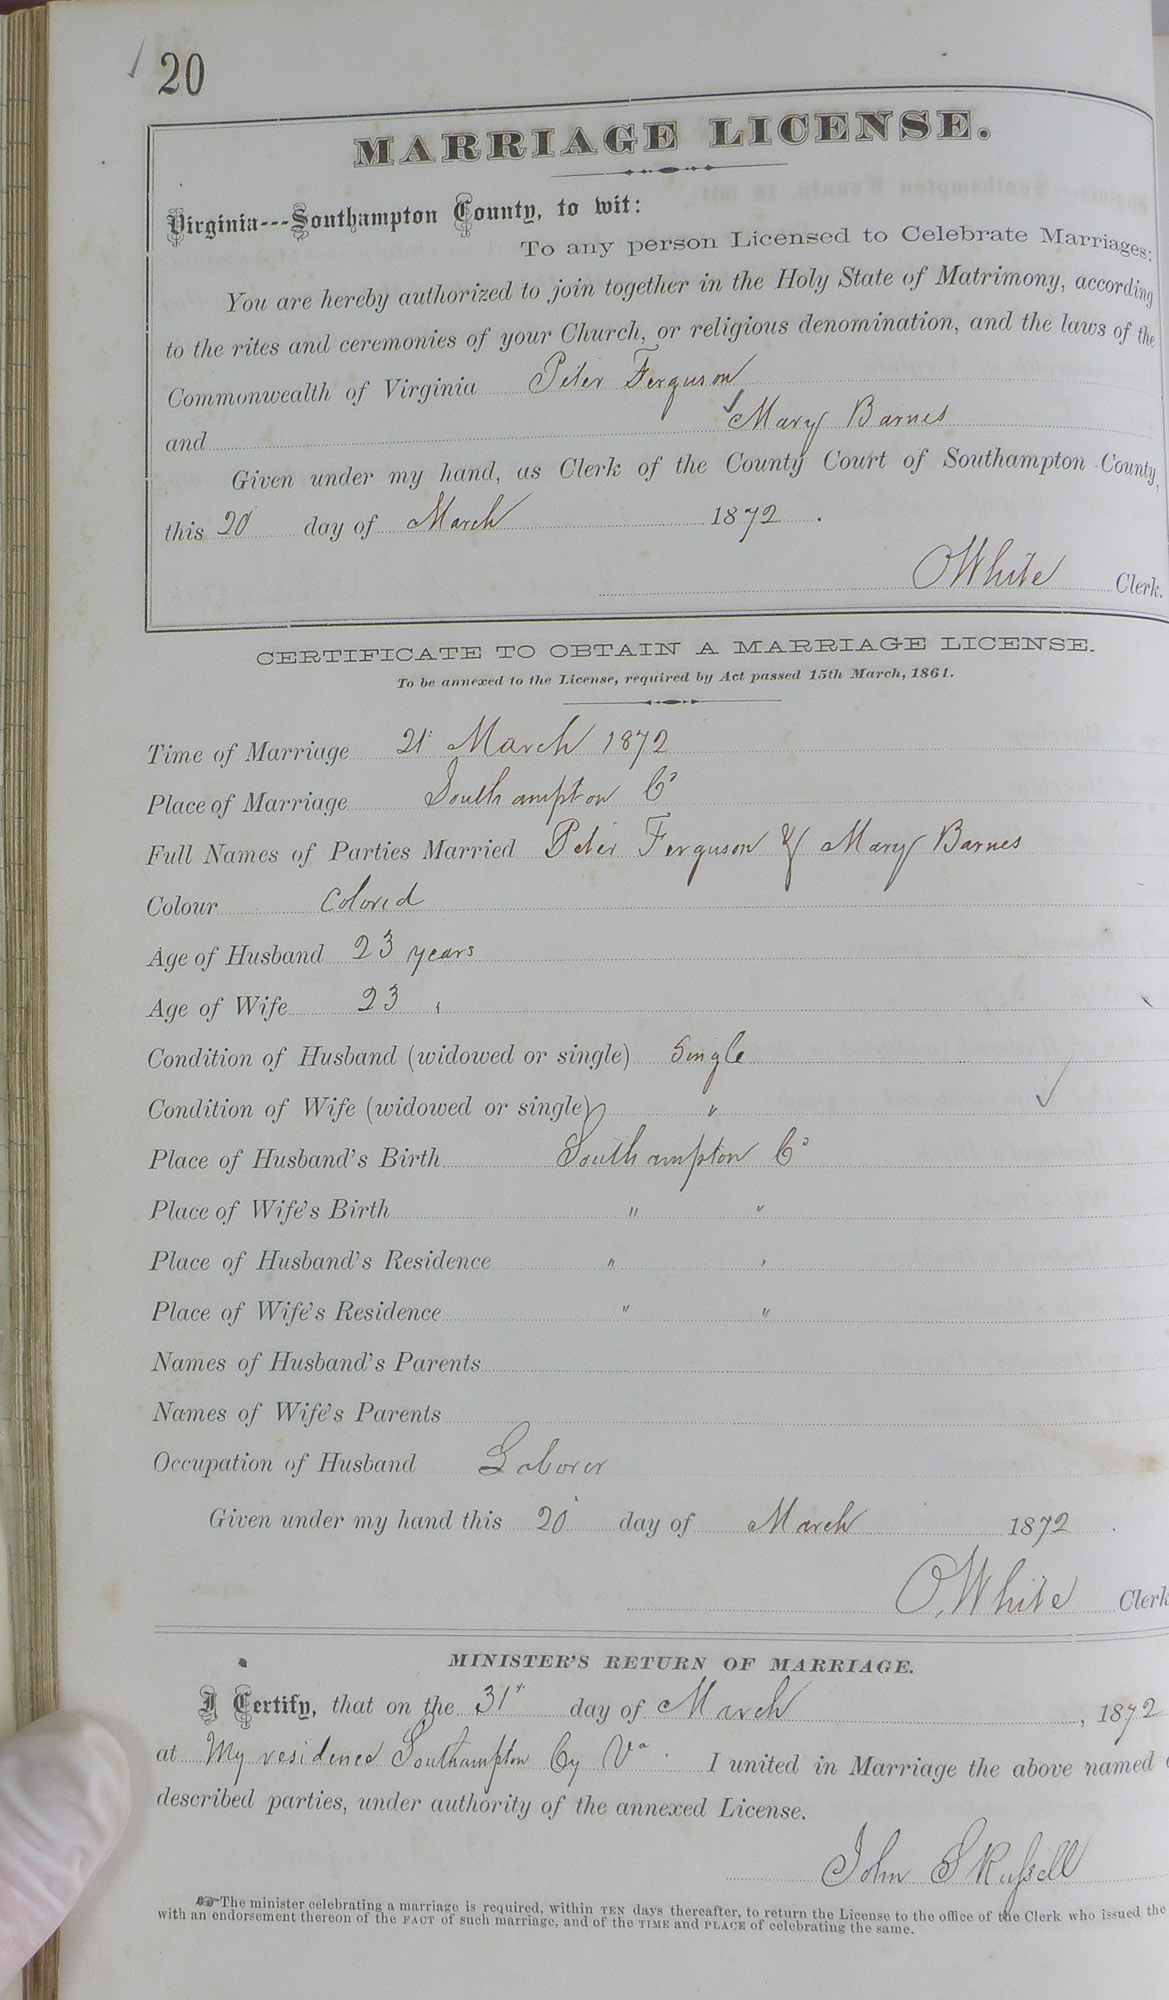 20
MARRIAGE LICENSE.
Virginia---Southampton County, to wit:
To any person Licensed to Celebrate Marriages:
You are hereby authorized to join together in the Holy State of Matrimony, according
to the rites and ceremonies of your Church, or religious denomination, and the laws of the
Commonwealth of Virginia Peter Ferguson
and Mary Barnes
Given under my hand, as Clerk of the County Court of Southampton County,
this 20 day of March 1872.
O White Clerk.
CERTIFICATE TO OBTAIN A MARRIAGE LICENSE.
To be annexed to the License, required by Act passed 15th March, 1861.
Time of Marriage 21 March 1872
Place of Marriage Southampton Co
Full Names of Parties Married Peter Ferguson & Mary Barnes
Colour Colored
Age of Husband 23 years
Age of Wife 23 "
Condition of Husband (widowed or single) Single
Condition of Wife (widowed or single) "
Place of Husband's Birth Southampton Co
Place of Wife's Birth " "
Place of Husband's Residence " "
Place of Wife's Residence " "
Names of Husband's Parents
Names of Wife's Parents
Occupation of Husband Laborer
Given under my hand this 20 day of March 1872.
O, White Clerk
MINISTER'S RETURN OF MARRIAGE.
I Certify, that on the 31st day of March, 1872
at My residence Southampton Cy Va. I united in Marriage the above named
described parties, under authority of the annexed License.
John S Russell
☞The minister celebrating a marriage is required, within TEN days thereafter, to return the License to the office of the Clerk who issued the
with an endorsement thereon of the FACT of such marriage, and of the TIME and PLACE of celebrating the same.